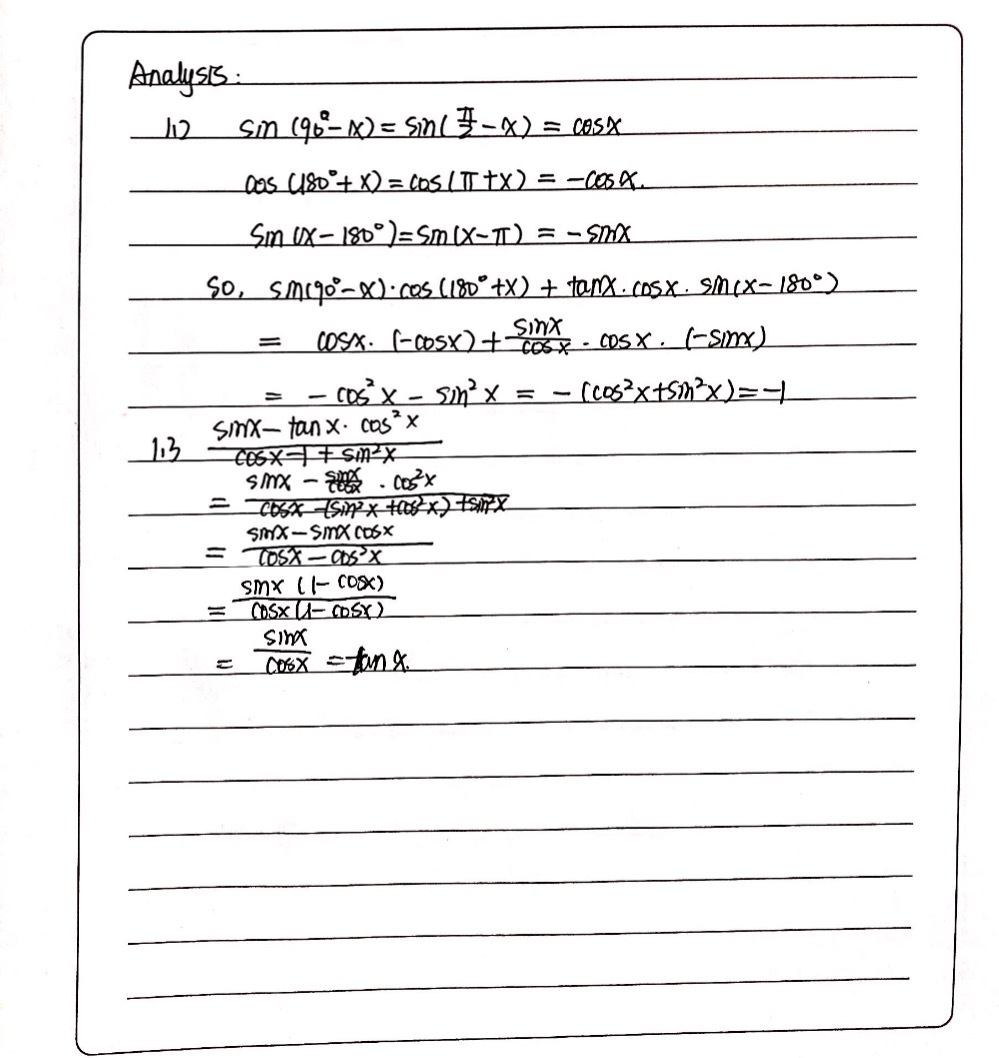 Analysis:
1.2 sin(90°-x) = sin(π/2 - x) = cosx
cos(180°+x) = cos(π+x) = -cosx.
Sin(x-180°) = Sin(x-π) = -sinx
So, sin(90°-x)·cos(180°+x) + tanx·cosx·sin(x-180°)
= cosx·(-cosx) + sinx/cosx · cosx·(-sinx)
= -cos²x - sin²x = -(cos²x+sin²x) = -1
1.3 (sinx - tanx·cos²x)/(cosx-1+sin²x)
= (sinx - sinx/cosx · cos²x)/(cosx-(sin²x+cos²x)+sin²x)
= (sinx - sinxcosx)/(cosx - cos²x)
= sinx(1-cosx)/cosx(1-cosx)
= sinx/cosx = tanx.